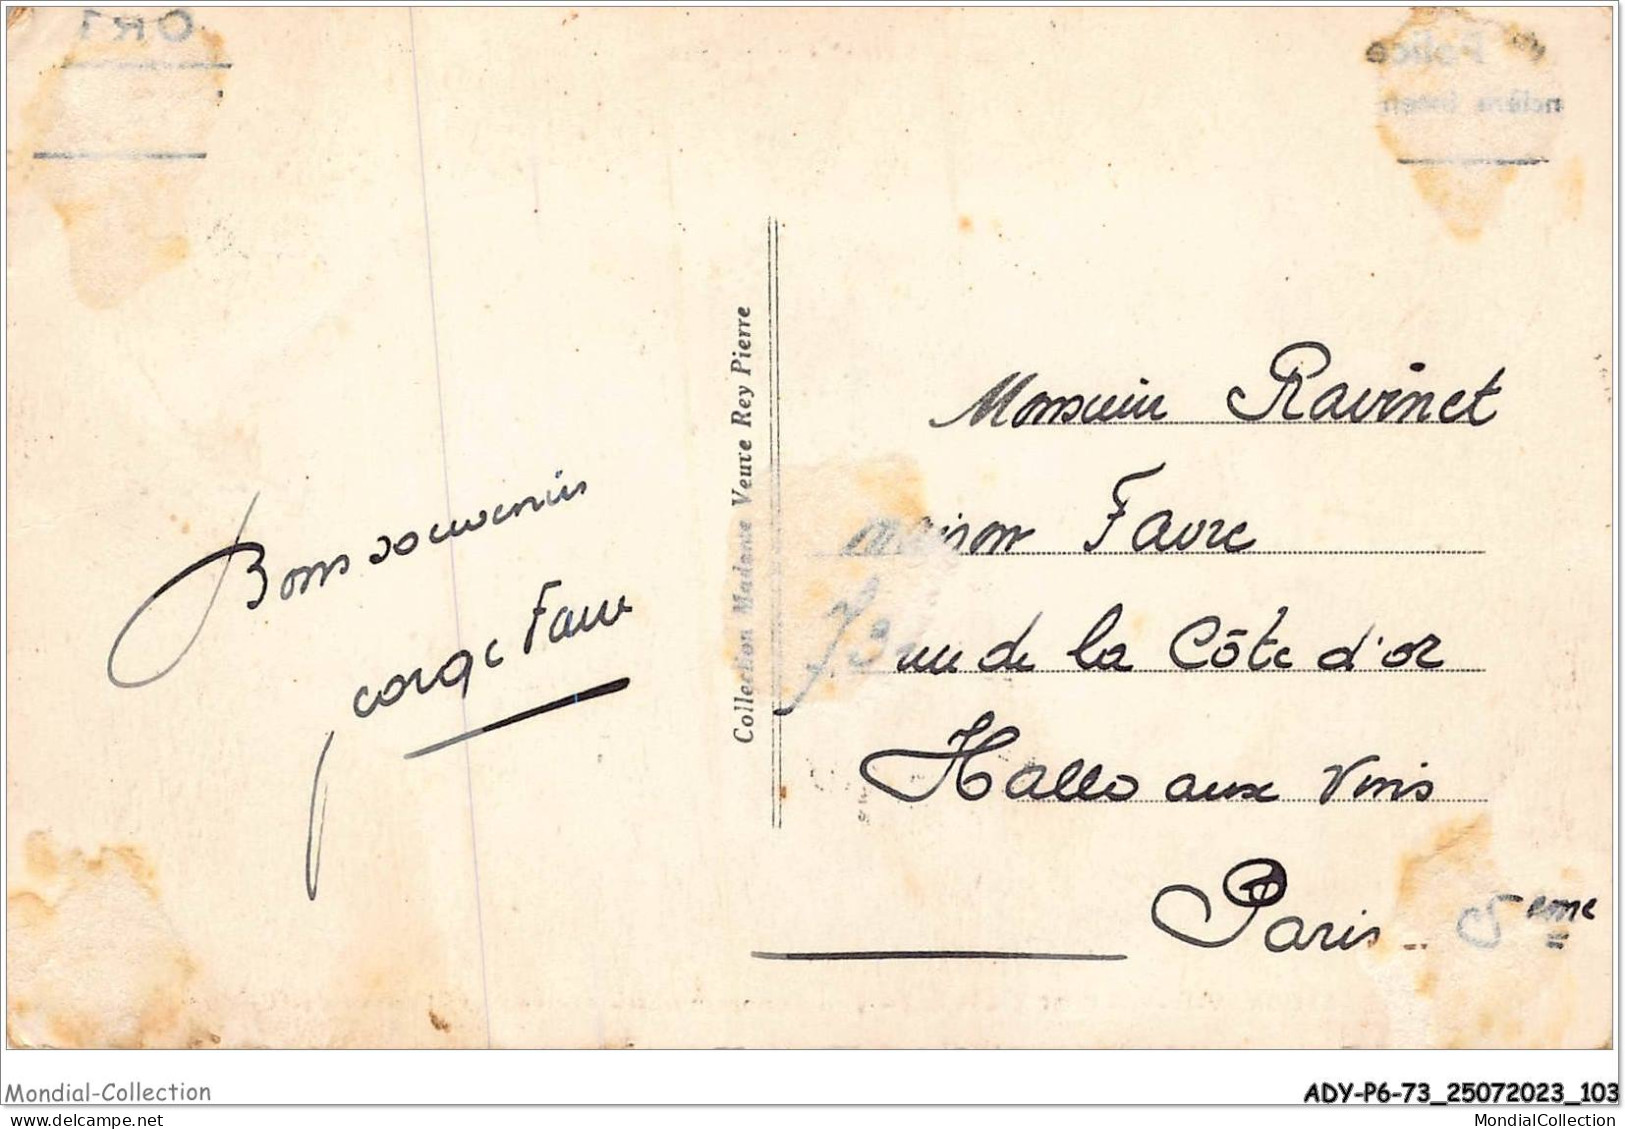 Bons souvenirs
George Favre
Collection Madame Veuve Rey Pierre
Monsieur Ravinet
maison Favre
73 rue de la Côte d'or
Halle aux Vins
Paris 5ème
Mondial-Collection
ADY-P6-73_25072023_103
www.delcampe.net
MondialCollection